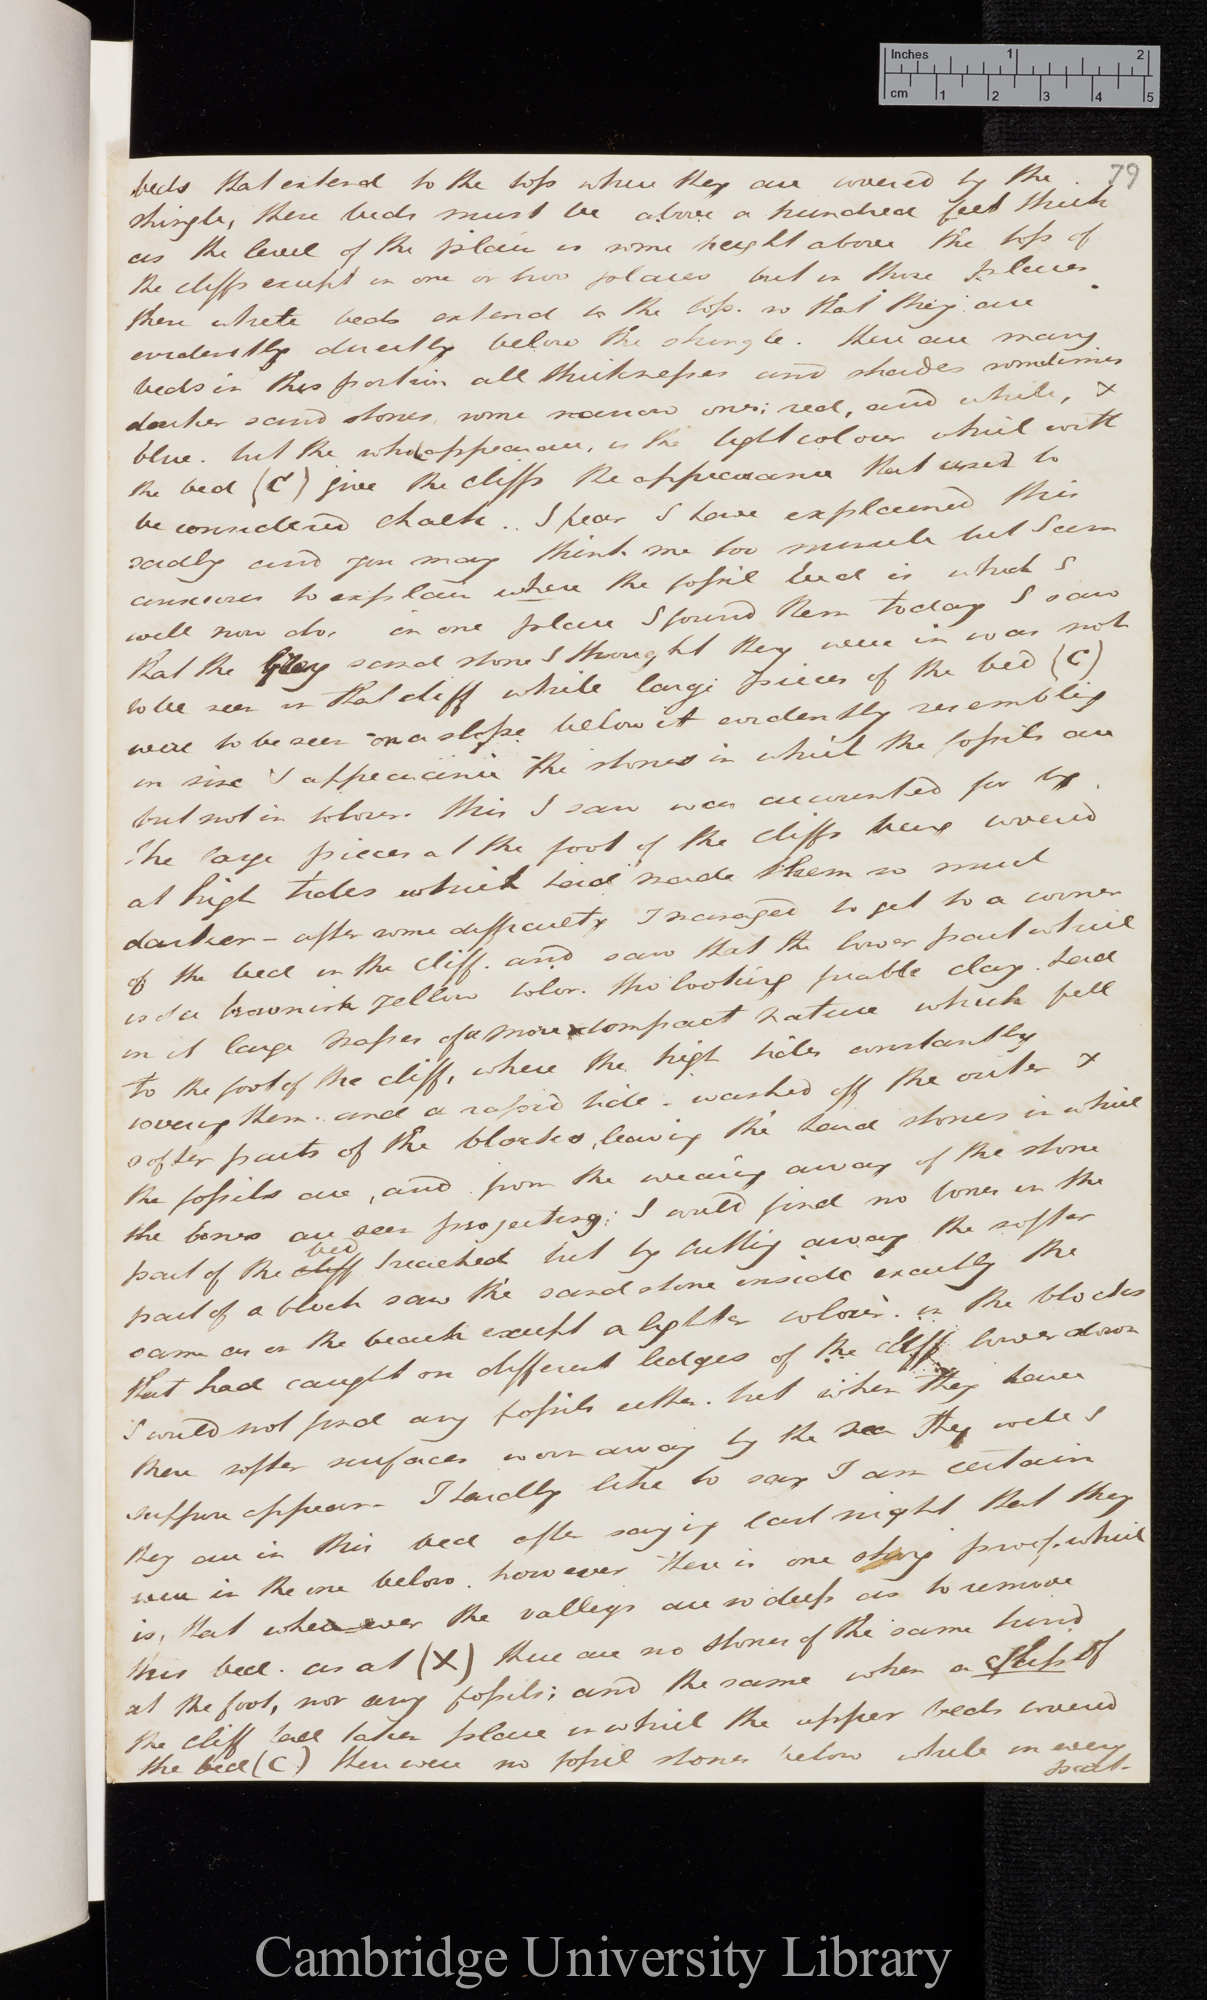 Inches 1 2
cm 1 2 3 4 5
79
beds that extend to the top where they are covered by the
shingle, these beds must be above a hundred feet thick
as the level of the plain is some height above the top of
the cliffs except in one or two places but in those places
these white beds extend to the top. so that they are
evidently directly below the shingle. there are many
beds in this portion all thicknesses and shades sometimes
darker sand stones, some narrow ones; red, and white, &
blue. but the whole appearance, is the light colour which with
the bed (C) give the cliffs the appearance that used to
be considered chalk. I fear I have explained this
sadly and you may think me too minute but I am
anxious to explain where the fossil bed is which I
will now do. in one place I found them today I saw
that the Grey sand stone I thought they were in was not
to be seen in that cliff while large pieces of the bed (C)
were to be seen on a slope below it evidently resembling
in size & appearance the stones in which the fossils are
but not in colour. this I saw was accounted for by
the large pieces at the foot of the cliffs being covered
at high tides which had made them so much
darker – after some difficulty I managed to get to a corner
of the bed in the cliff. and saw that the lower part which
is of a brownish yellow color. tho looking friable clay. had
in it large masses of a more compact nature which fell
to the foot of the cliff, where the high tides constantly
covering them. and a rapid tide – washed off the outer &
softer parts of the blocks, leaving the hard stones in which
the fossils are, and from the wearing away of the stone
the bones are seen projecting; I could find no bones in the
bed
part of the cliff I reached but by cutting away the softer
part of a block saw the sand stone inside exactly the
same as on the beach except a lighter colour. in the blocks
that had caught on different ledges of the cliff lower down
I could not find any fossils either. but when they have
their softer surfaces worn away by the sea they will I
suppose appear – I hardly like to say I am certain
they are in this bed after saying last night that they
were in the one below. however there is one strong proof. which
is, that where ever the valleys are so deep as to remove
this bed. as at (X) there are no stones of the same kind
at the foot, nor any fossils; and the same when a slip of
the cliff has taken place in which the upper beds covered
the bed (C) there were no fossil stones below while in every
part
Cambridge University Library